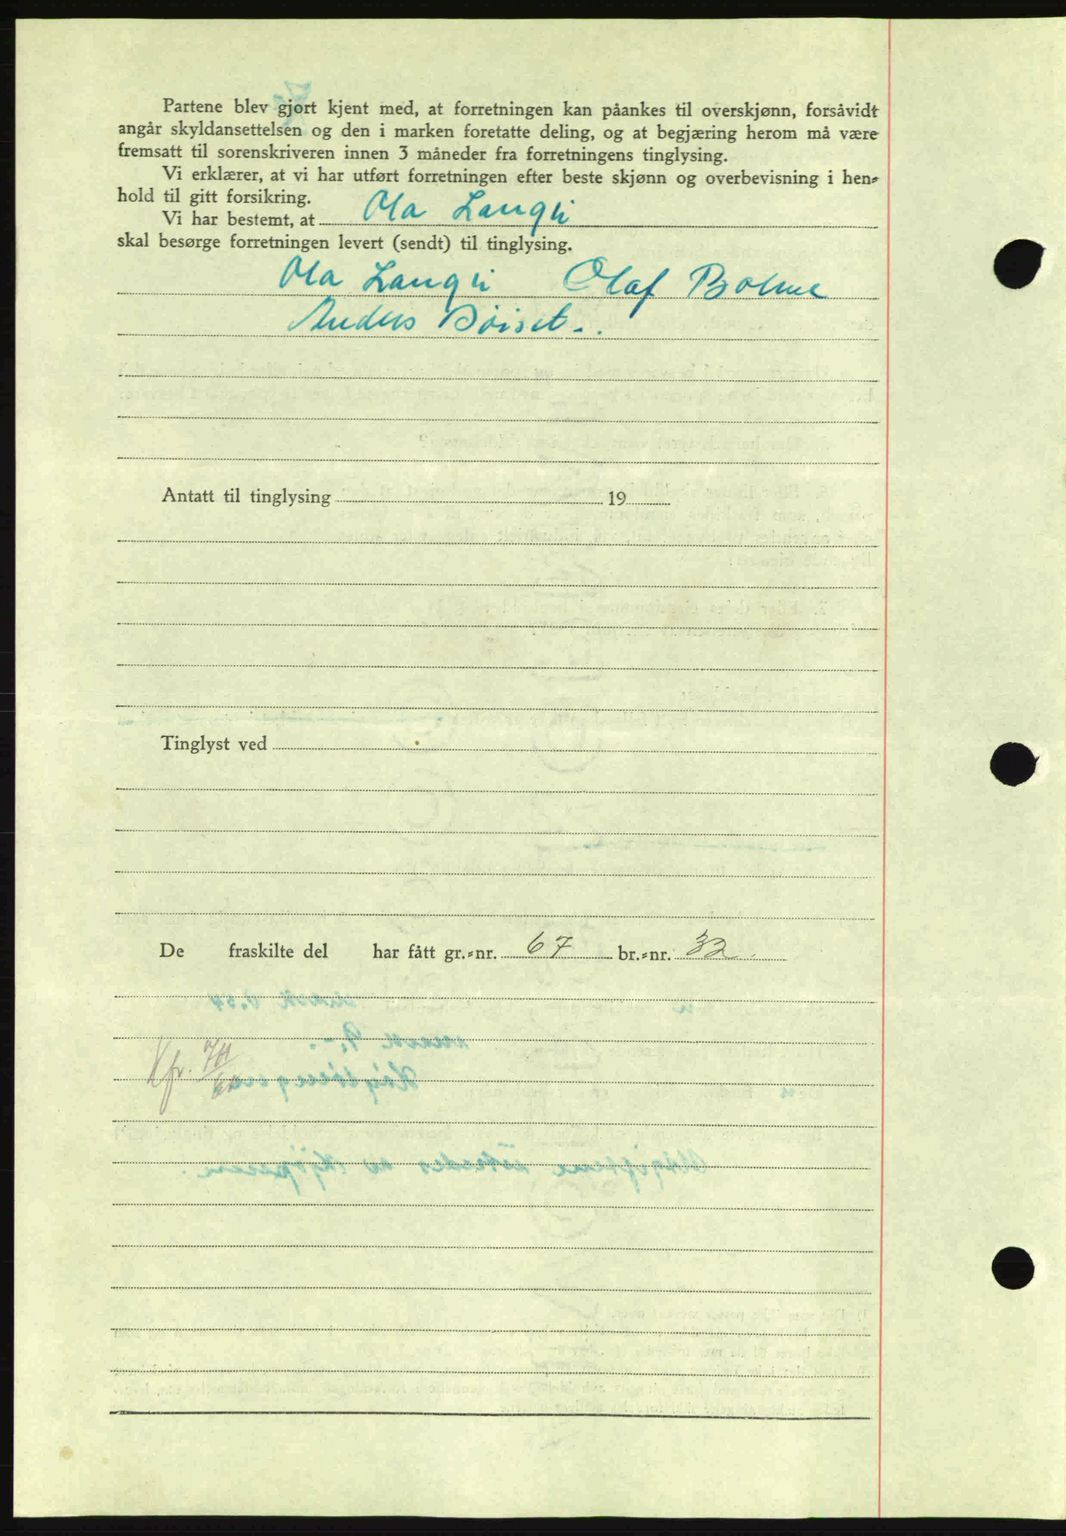 Partene blev gjort kjent med, at forretningen kan påankes til overskjønn, forsåvidt
angår skyldansettelsen og den i marken foretatte deling, og at begjæring herom må være
fremsatt til sorenskriveren innen 3 måneder fra forretningens tinglysing.
Vi erklærer, at vi har utført forretningen efter beste skjønn og overbevisning i hen-
hold til gitt forsikring.
Vi har bestemt, at Ola Langli
skal besørge forretningen levert (sendt) til tinglysing.
Ola Langli Olaf Bolme
Anders Bøiset.
Antatt til tinglysing 19
Tinglyst ved
De fraskilte del har fått gr.-nr. 67 br.-nr. 32.
Kfr.